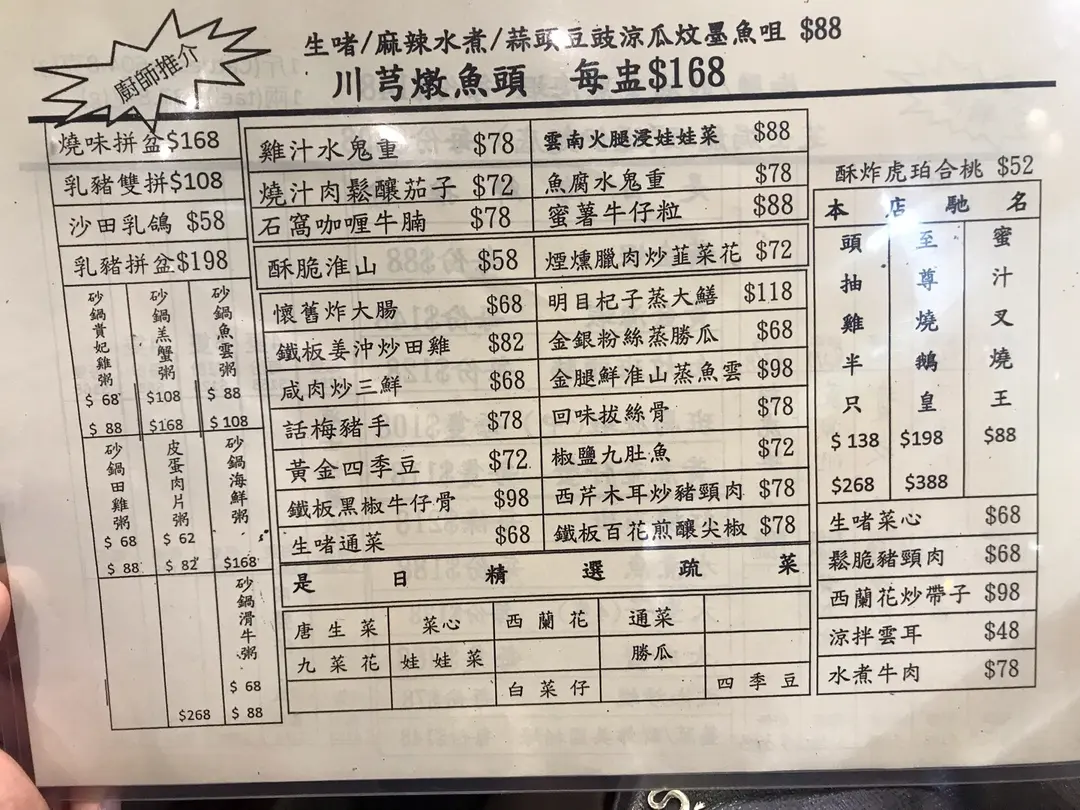 廚師推介
生啫/麻辣水煮/蒜頭豆豉涼瓜炆墨魚咀 $88
川芎燉魚頭 每盅$168
燒味拼盆$168
乳豬雙拼$108
沙田乳鴿 $58
乳豬拼盆$198
砂鍋貴妃雞粥 $ 68 $ 88
砂鍋羔蟹粥 $108 $168
砂鍋魚雲粥 $ 88 $ 108
砂鍋田雞粥 $ 68 $ 88
皮蛋肉片粥 $ 62 $ 82
砂鍋海鮮粥 $168
$268
砂鍋滑牛粥 $ 68 $ 88
雞汁水鬼重 $78
雲南火腿浸娃娃菜 $88
燒汁肉鬆釀茄子 $72
魚腐水鬼重 $78
石窩咖喱牛腩 $78
蜜薯牛仔粒 $88
酥脆淮山 $58
煙燻臘肉炒韮菜花 $72
懷舊炸大腸 $68
明目杞子蒸大鱔 $118
鐵板姜沖炒田雞 $82
金銀粉絲蒸勝瓜 $68
咸肉炒三鮮 $68
金腿鮮准山蒸魚雲 $98
話梅豬手 $78
回味拔絲骨 $78
黃金四季豆 $72
椒鹽九肚魚 $72
鐵板黑椒牛仔骨 $98
西芹木耳炒豬頸肉 $78
生啫通菜 $68
鐵板百花煎釀尖椒 $78
是日精選疏菜
唐生菜 菜心 西蘭花 通菜
九菜花 娃娃菜 勝瓜
白菜仔 四季豆
酥炸虎珀合桃 $52
本店馳名
頭抽雞半只 $ 138 $268
至尊燒鵝皇 $198 $388
蜜汁叉燒王 $88
生啫菜心 $68
鬆脆豬頸肉 $68
西蘭花炒帶子 $98
涼拌雲耳 $48
水煮牛肉 $78